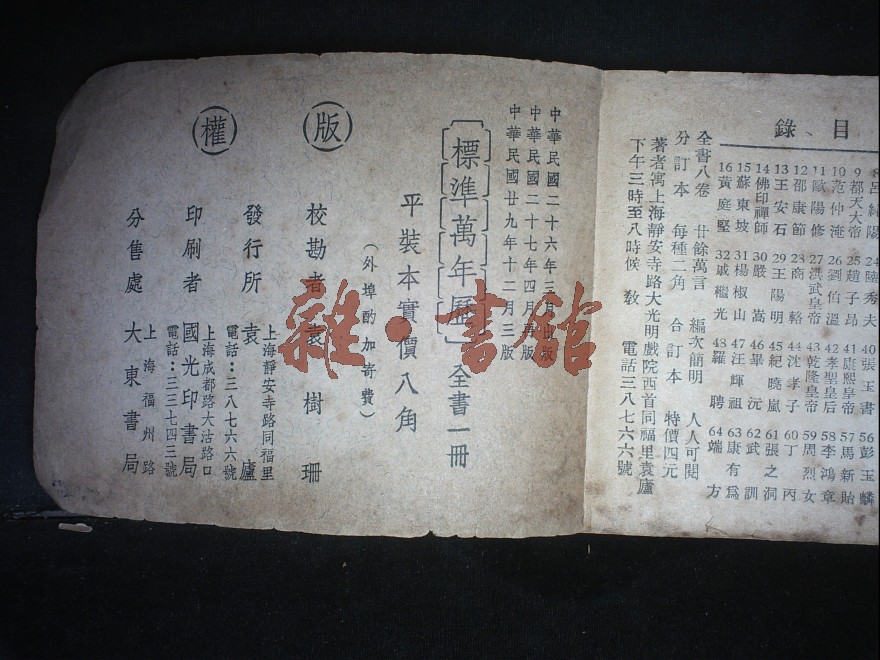 目錄
8 呂純陽 24 陸秀夫 40 張玉書 56 彭玉麟
9 都天大帝 25 趙子昂 41 康熙皇帝 57 馬新貽
10 范仲淹 26 劉伯溫 42 孝聖皇后 58 李鴻章
11 歐陽修 27 洪武皇帝 43 乾隆皇帝 59 周烈女
12 邵康節 28 商輅 44 沈孝子 60 丁丙
13 王安石 29 王陽明 45 紀曉嵐 61 張之洞
14 佛印禪師 30 嚴嵩 46 畢沅 62 武訓
15 蘇東坡 31 楊椒山 47 汪輝祖 63 康有為
16 黃庭堅 32 戚繼光 48 羅聘 64 端方
全書八卷 廿餘萬言 編次簡明 人人可閱
分訂本 每種二角 合訂本 特價四元
著者寓上海靜安寺路大光明戲院西首同福里袁廬
下午三時至八時候教 電話三八七六六號
中華民國二十六年三月出版
中華民國二十七年四月再版
中華民國廿九年十二月三版
標準萬年歷 全書一冊
平裝本實價八角
(外埠酌加寄費)
版權
校勘者 袁樹珊
發行所 袁廬
上海靜安寺路同福里
電話:三八七六六號
印刷者 國光印書局
上海成都路大沽路口
電話:三三七四三號
分售處 大東書局
上海福州路
雜·書館